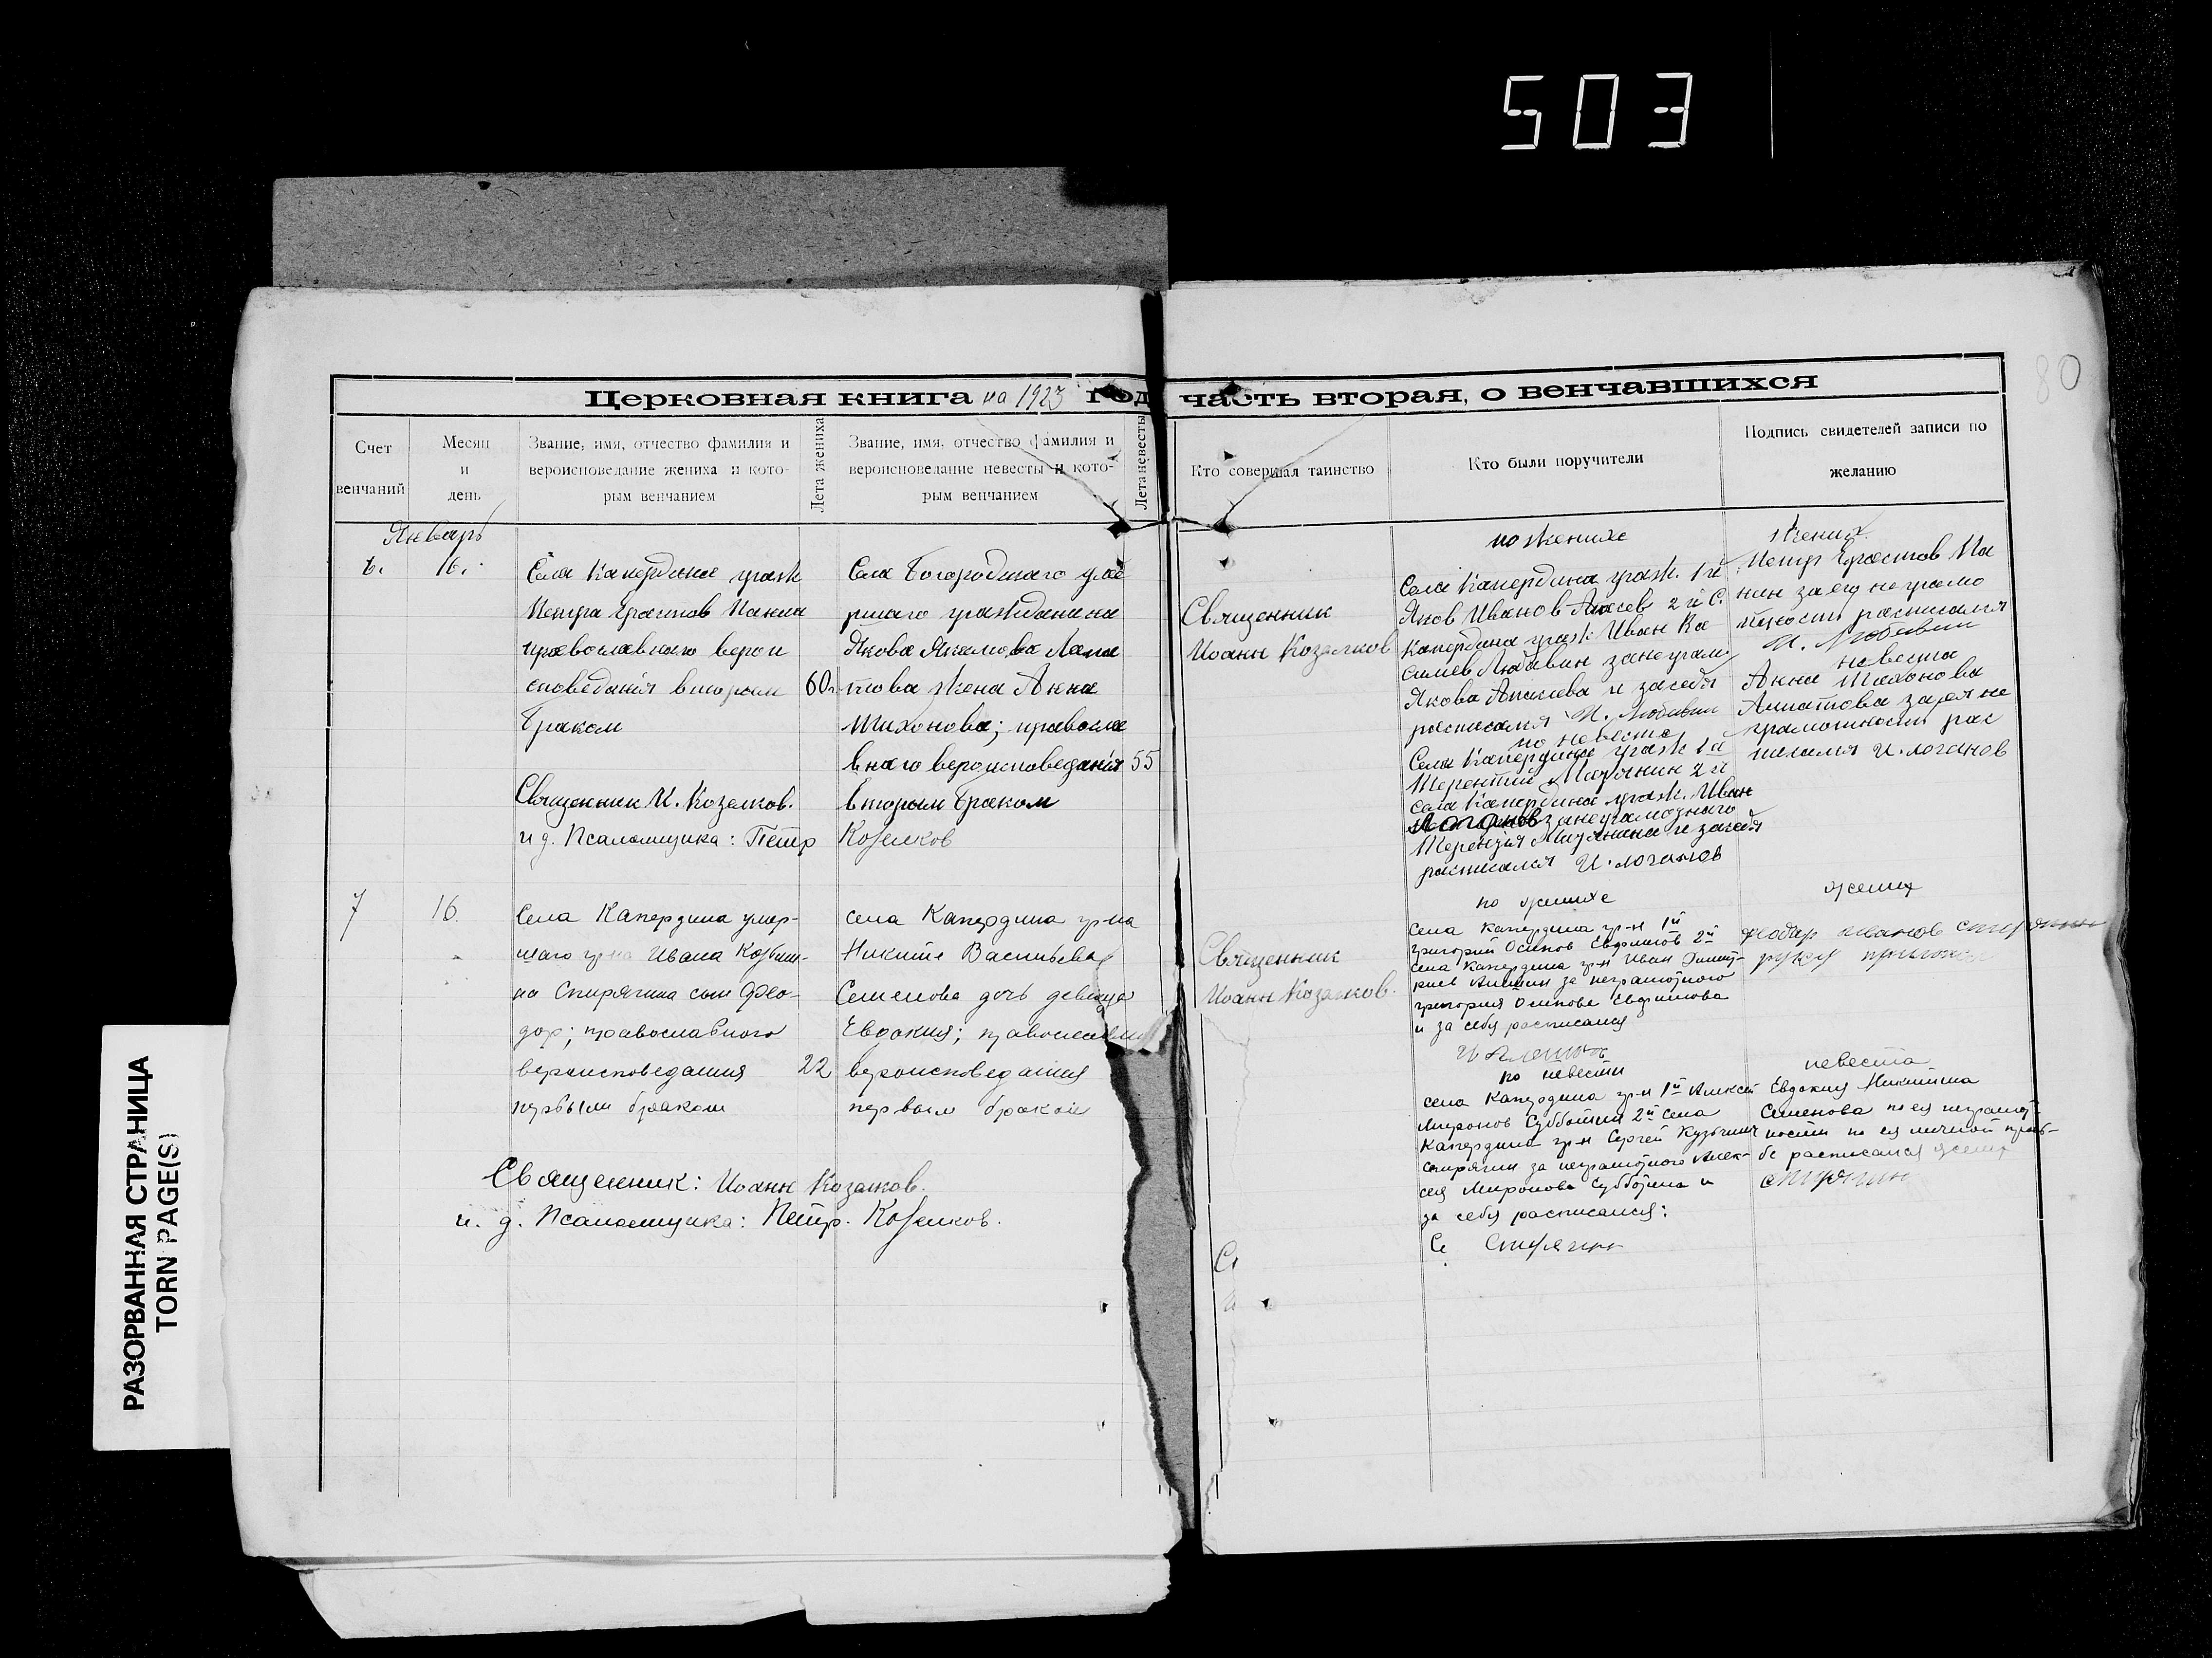 503
80
Церковная книга на 1923 год часть вторая, о венчавшихся
Счет венчаний
Месяц и день
Звание, имя, отчество фамилия и
вероисповедание жениха и кото-
рым венчанием
Лета жениха
Звание, имя, отчество фамилия и
вероисповедание невесты и кото-
рым венчанием
Лета невесты
Кто совершал таинство
Кто были поручители
Подпись свидетелей записи по
желанию
Январь
6. 16.
Села Капердина граж
Петра
православного верои
споведания вторым
браком
60
Священник И. Козелков.
и д. Псаломщика: Петр Козелков
Села Богородицкаго уме
ршаго гражданина
Якова
жена Анна
Тихонова; правосла
внаго вероисповедания
вторым браком
55
Священник
Иоанн Козелков
по женихе
Села Капердина граж. 1й
Яков Иванов 2й С.
Капердина граж. Иван Ка
Любавин за неграм.
Якова и за себя
расписался И. Любавин
по невесте
Села Капердина граж 1й
Терентий 2й
села Капердина граж. Иван
Логанов за неграмотного
Терентия и за себя
расписался И. Логанов
Жених
Петр
нин за его неграмо
тность расписался
И. Любавин
невеста
Анна Тихонова
за ея не
грамотностью рас
писался И. Логанов
7 16.
Села Капердина умер-
шаго гр-на Ивана Козьми-
на Спирягина сын Фео-
дор; православного
вероисповедания
первым браком
22
села Капердина гр-на
Никиты Васильева
Семенова дочь девица
Евдокия; православного
вероисповедания
первым браком
Священник: Иоанн Козелков.
и. д. Псаломщика: Петр. Козелков.
Священник
Иоанн Козелков.
по женихе
села Капердина гр-н 1й
Григорий Осипов Евфимов 2й
села Капердина гр-н Иван Дмит-
риев за неграмотного
Григория Осипова Евфимова
и за себя расписался
по невесте
села Капердина гр-н 1й Алексей
Миронов Субботин 2й села
Капердина гр-н Сергей Кузьмин
Спирягин за неграмотного Алек-
сея Миронова Субботина и
за себя расписался:
С Спирягин
жених
феодар иванов спирягин
руку приложил
невеста
Евдокия Никитина
Семенова по ея неграмот-
ности по ея личной прось-
бе расписался жених
спирягин
РАЗОРВАННАЯ СТРАНИЦА
TORN PAGE(S)